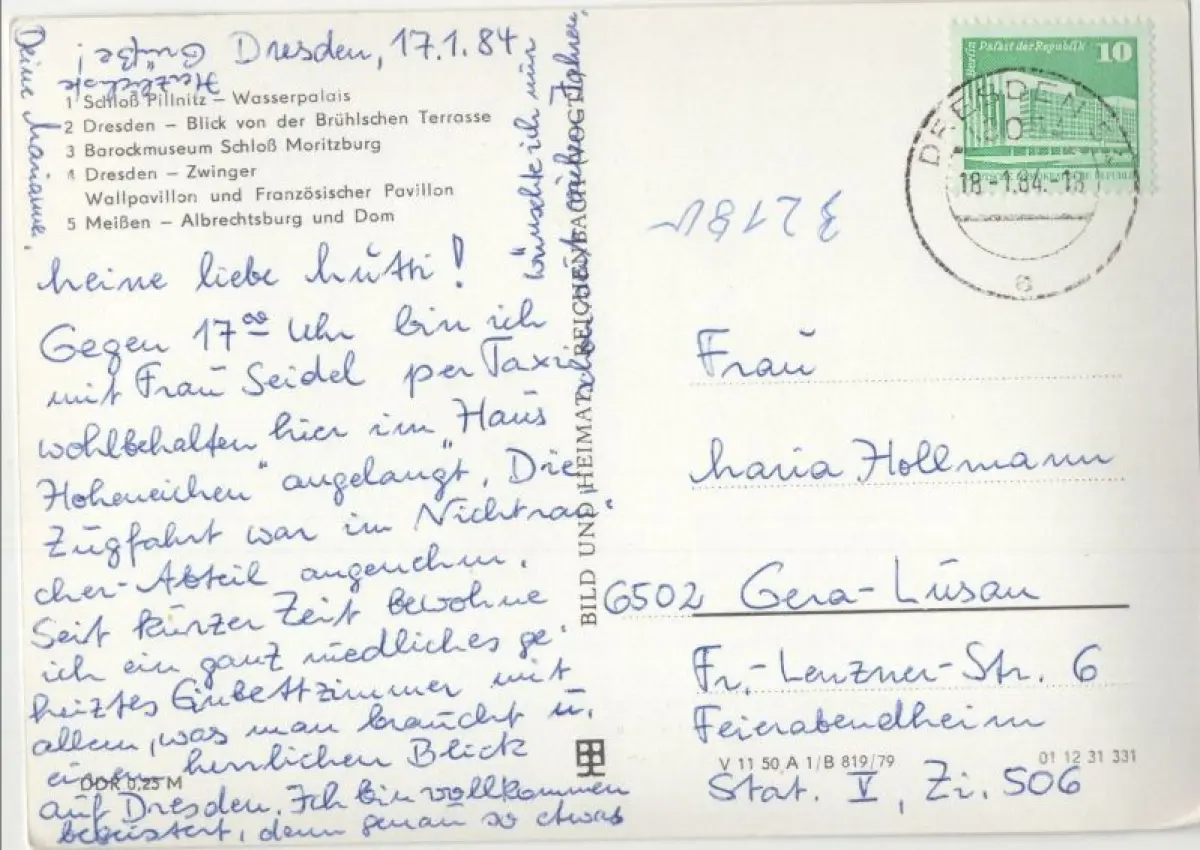 Dresden, 17.1.84
1 Schloß Pillnitz – Wasserpalais
2 Dresden – Blick von der Brühlschen Terrasse
3 Barockmuseum Schloß Moritzburg
4 Dresden – Zwinger
Wallpavillon und Französischer Pavillon
5 Meißen – Albrechtsburg und Dom
Meine liebe Mutti!
Gegen 17 00 Uhr bin ich
mit Frau Seidel per Taxi
wohlbehalten hier im "Haus
Hoheneichen" angelangt. Die
Zugfahrt war im Nichtrau-
cher-Abteil angenehm.
Seit kurzer Zeit bewohne
ich ein ganz niedliches ge-
heiztes Einbettzimmer mit
allem, was man braucht u.
einen herrlichen Blick
auf Dresden. Ich bin vollkommen
begeistert, denn genau so etwas
wünschte ich mir
schon seit vielen Jahren.
Herzlichste
Grüße!
Deine Marianne.
DDR 0,25 M
BILD UND HEIMAT REICHENBACH (VOGTL)
Berlin Palast der Republik 10
DEUTSCHE DEMOKRATISCHE REPUBLIK
DRESDEN
18.-1.84.-18
a
Frau
Maria Hollmann
6502 Gera-Lusan
Fr.-Lenzner-Str. 6
Feierabendheim
V 11 50 A 1/B 819/79
01 12 31 331
Stat. V, Zi. 506